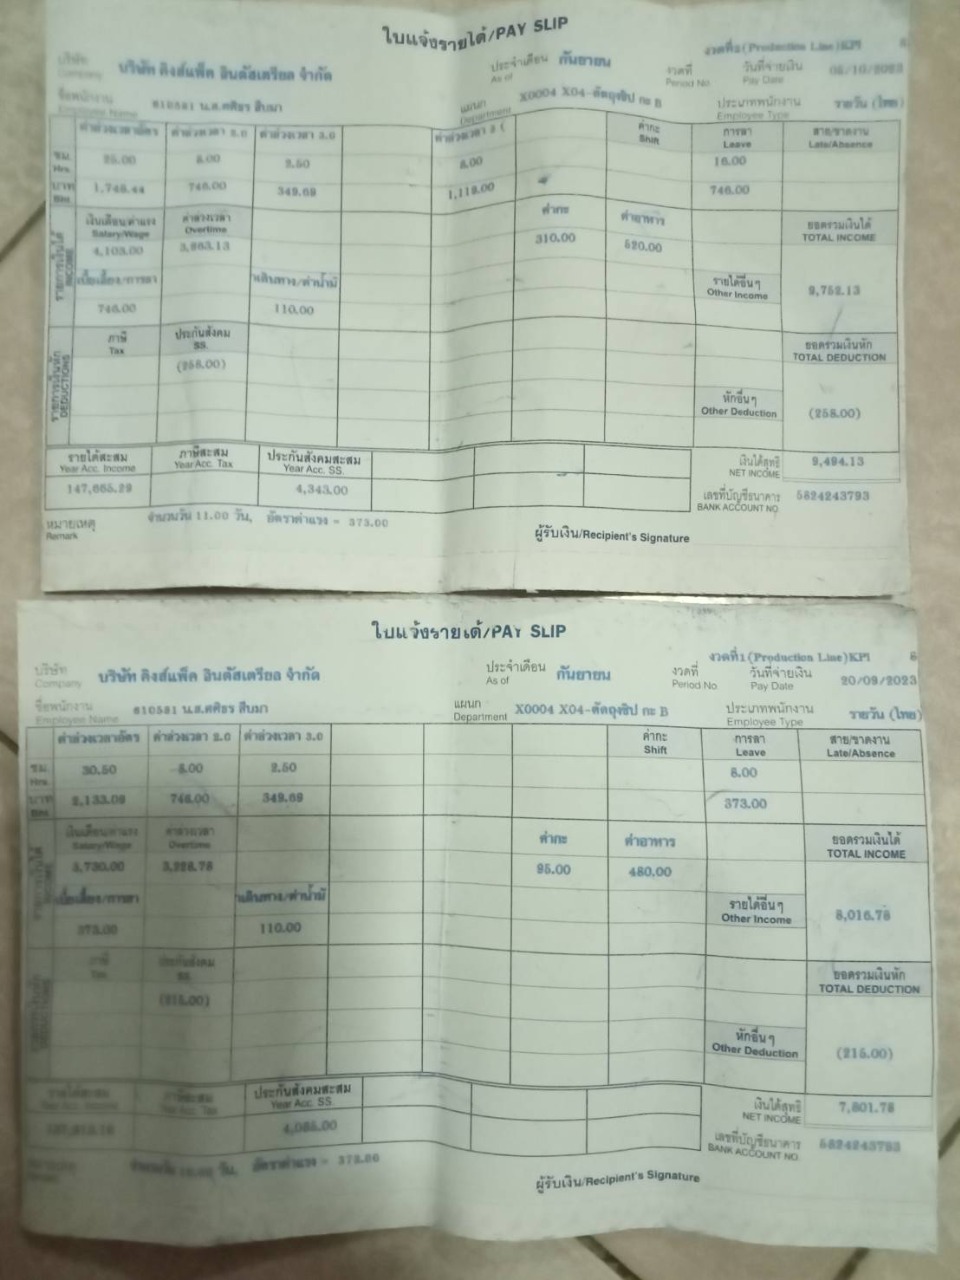 ใบแจ้งรายได้/PAY SLIP
งวดที่2(Production Line)KPI
บริษัท บริษัท คิงส์แพ็ค อินดัสเตรียล จำกัด ประจำเดือน กันยายน งวดที่ วันที่จ่ายเงิน 05/10/2023
Company As of Period No Pay Date
ชื่อพนักงาน 610581 น.ส.ศศิธร สืบมา แผนก X0004 X04-ตัดถุงซิป กะ B ประเภทพนักงาน รายวัน (ไทย)
Employee Name Department Employee Type
ค่าล่วงเวลาอัตร ค่าล่วงเวลา 2.0 ค่าล่วงเวลา 3.0 ค่าล่วงเวลา ค่ากะ การลา สาย/ขาดงาน
Shift Leave Late/Absence
ชม. 25.00 8.00 2.50 8.00 16.00
Hrs.
บาท 1,748.44 746.00 349.69 1,119.00 746.00
เงินเดือน/ค่าแรง ค่าล่วงเวลา ค่ากะ ค่าอาหาร ยอดรวมเงินได้
Salary/Wage Overtime TOTAL INCOME
รายการเงินได้ INCOME 4,103.00 3,963.13 310.00 520.00
เบี้ยเลี้ยง/การลา าเดินทาง/ค่าน้ำมั รายได้อื่นๆ 9,752.13
Other Income
746.00 110.00
ภาษี ประกันสังคม ยอดรวมเงินหัก
Tax SS. TOTAL DEDUCTION
รายการเงินหัก DEDUCTIONS (258.00)
หักอื่นๆ (258.00)
Other Deduction
รายได้สะสม ภาษีสะสม ประกันสังคมสะสม เงินได้สุทธิ 9,494.13
Year Acc. Income Year Acc. Tax Year Acc. SS. NET INCOME
147,665.29 4,343.00 เลขที่บัญชีธนาคาร 5824243793
BANK ACCOUNT NO.
หมายเหตุ จำนวนวัน 11.00 วัน, อัตราค่าแรง = 373.00 ผู้รับเงิน/Recipient's Signature
Remark
ใบแจ้งรายได้/PAY SLIP
งวดที่1(Production Line)KPI
บริษัท บริษัท คิงส์แพ็ค อินดัสเตรียล จำกัด ประจำเดือน กันยายน งวดที่ วันที่จ่ายเงิน 20/09/2023
Company As of Period No Pay Date
ชื่อพนักงาน 610581 น.ส.ศศิธร สืบมา แผนก X0004 X04-ตัดถุงซิป กะ B ประเภทพนักงาน รายวัน (ไทย)
Employee Name Department Employee Type
ค่าล่วงเวลาอัตร ค่าล่วงเวลา 2.0 ค่าล่วงเวลา 3.0 ค่ากะ การลา สาย/ขาดงาน
Shift Leave Late/Absence
ชม. 30.50 8.00 2.50 8.00
Hrs.
บาท 2,133.09 746.00 349.69 373.00
เงินเดือน/ค่าแรง ค่าล่วงเวลา ค่ากะ ค่าอาหาร ยอดรวมเงินได้
Salary/Wage Overtime TOTAL INCOME
3,730.00 3,228.78 95.00 480.00
เบี้ยเลี้ยง/การลา าเดินทาง/ค่าน้ำมั รายได้อื่นๆ 8,016.78
Other Income
373.00 110.00
ภาษี ประกันสังคม ยอดรวมเงินหัก
Tax SS. TOTAL DEDUCTION
(215.00)
หักอื่นๆ (215.00)
Other Deduction
ประกันสังคมสะสม เงินได้สุทธิ 7,801.78
Year Acc. SS. NET INCOME
4,085.00 เลขที่บัญชีธนาคาร 5824243793
BANK ACCOUNT NO.
จำนวนวัน 10.00 วัน, อัตราค่าแรง = 373.00 ผู้รับเงิน/Recipient's Signature